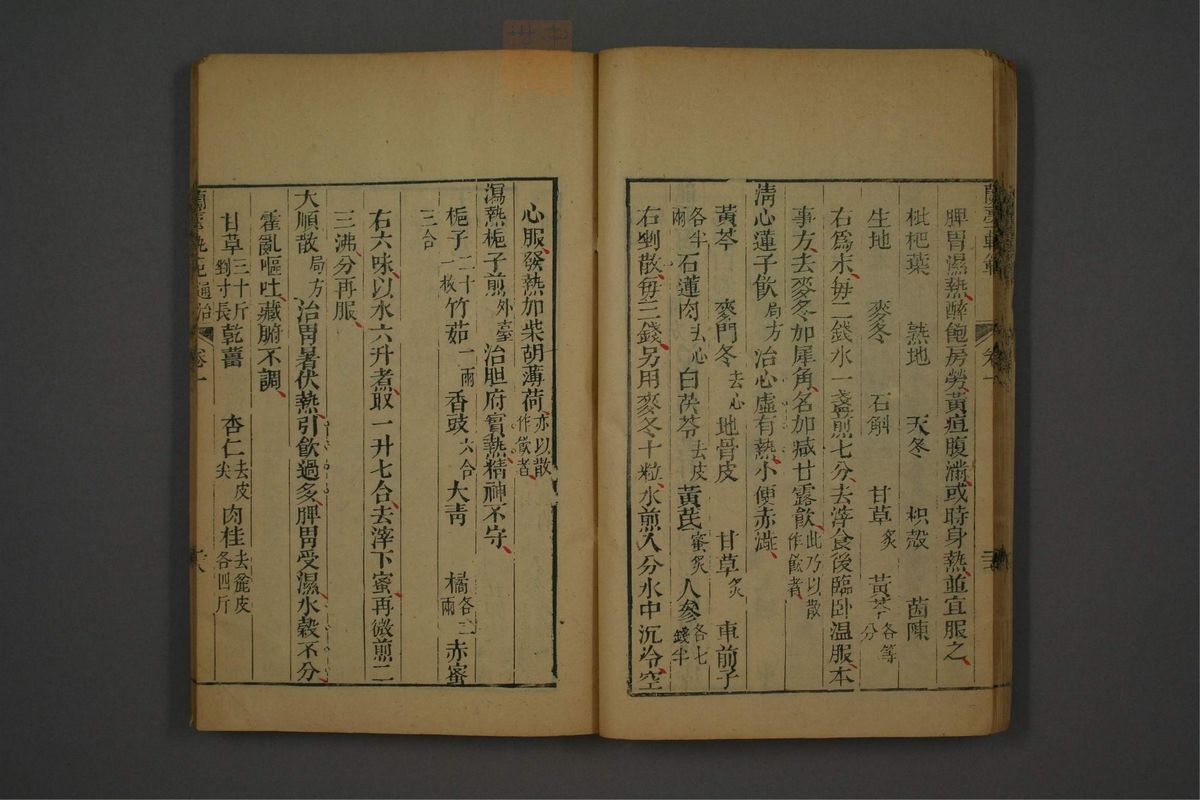 脾胃濕熱醉飽房勞黃疸腹滿或時身熱並宜服之
枇杷葉 熟地 天冬 枳殼 茵陳
生地 麥冬 石斛 甘草炙 黃芩各等分
右爲末每二錢水一盞煎七分去滓食後臨臥温服本
事方去麥冬加犀角名加減甘露飲此乃以散作飲者
清心蓮子飲局方治心虛有熱小便赤澁
黃芩 麥門冬去心 地骨皮 甘草炙 車前子
各半兩石蓮肉去心白茯苓去皮黃芪蜜炙人參各七錢半
右剉散每三錢另用麥冬十粒水煎八分水中沉冷空
心服發熱加柴胡薄荷亦以散作飲者
瀉熱梔子煎外臺治胆府實熱精神不守
梔子二十一枚竹茹一兩香豉六合大青 橘各二兩赤蜜
三合
右六味以水六升煮取一升七合去滓下蜜再微煎二
三沸分再服
大順散局方治胃暑伏熱引飲過多脾胃受濕水穀不分
霍亂嘔吐藏腑不調
甘草三十斤剉寸長乾薑 杏仁去皮尖 肉桂去麄皮各四斤
蘭臺軌範 卷一
通治 卷一